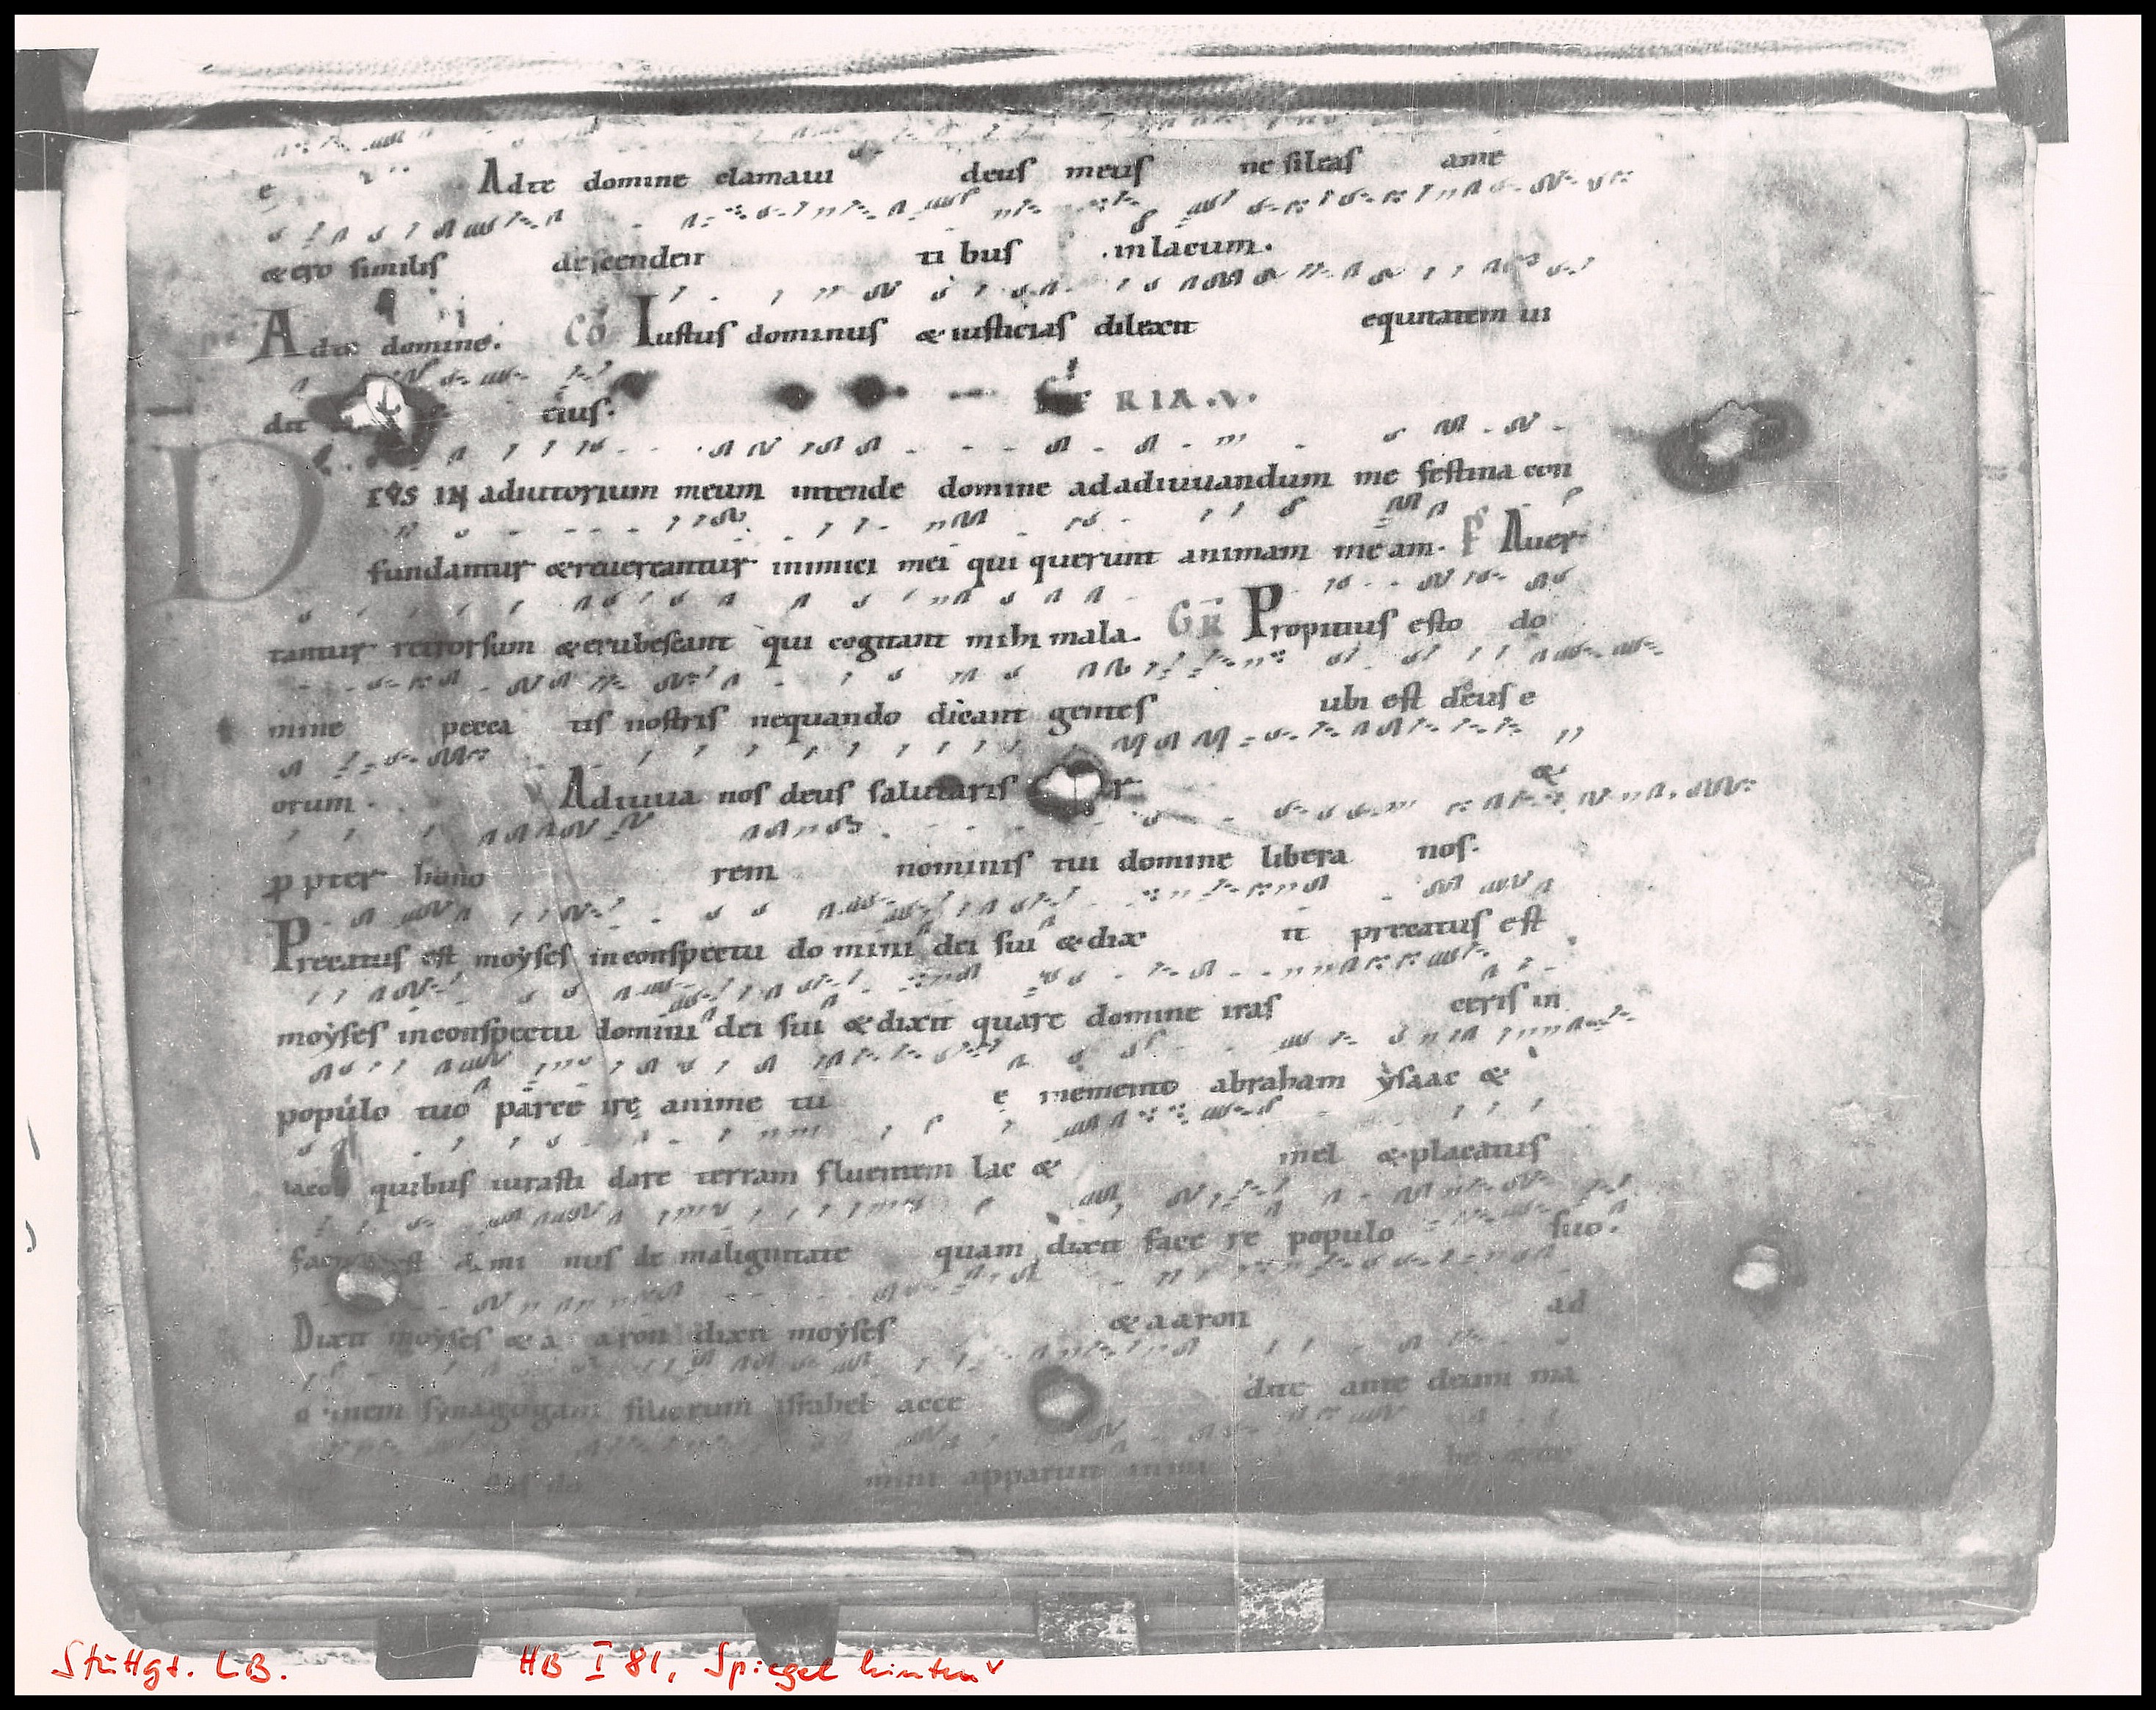 e Adte domine clamaui deus meus ne sileas ame
& ero similis descenden ti bus in lacum.
Adte domine. CO Iustus dominus & iusticias dilexit equitatem ui
dit eius. FERIA.V.
DEUS IN adiutorium meum intende domine ad adiuuandum me festina con
fundantur & reuereantur inimici mei qui querunt animam meam. Ps Auer
tantur retrorsum & erubescant qui cogitant mihi mala. GR Propitius esto do
mine pecca tis nostris nequando dicant gentes ubi est deus e
orum. Adiuua nos deus salutaris r &
ppter hono rem nominis tui domine libera nos.
Precatus est moyses in conspectu do mini dei sui & dix it precatus est
moyses in conspectu domini dei sui & dixit quare domine iras ceris in
populo tuo parce ire anime tu e memento abraham ysaac &
iacob quibus iurasti dare terram fluentem lac & mel & placatus
factus est domi nus de malignitate quam dixit face re populo suo.
Dixit moyses & a aron dixit moyses & aaron ad
omnem synagogam filiorum israhel acce dite ante deum ma
ies do mini apparuit
Stuttgt. LB. HB I 81, Spiegel hinten v